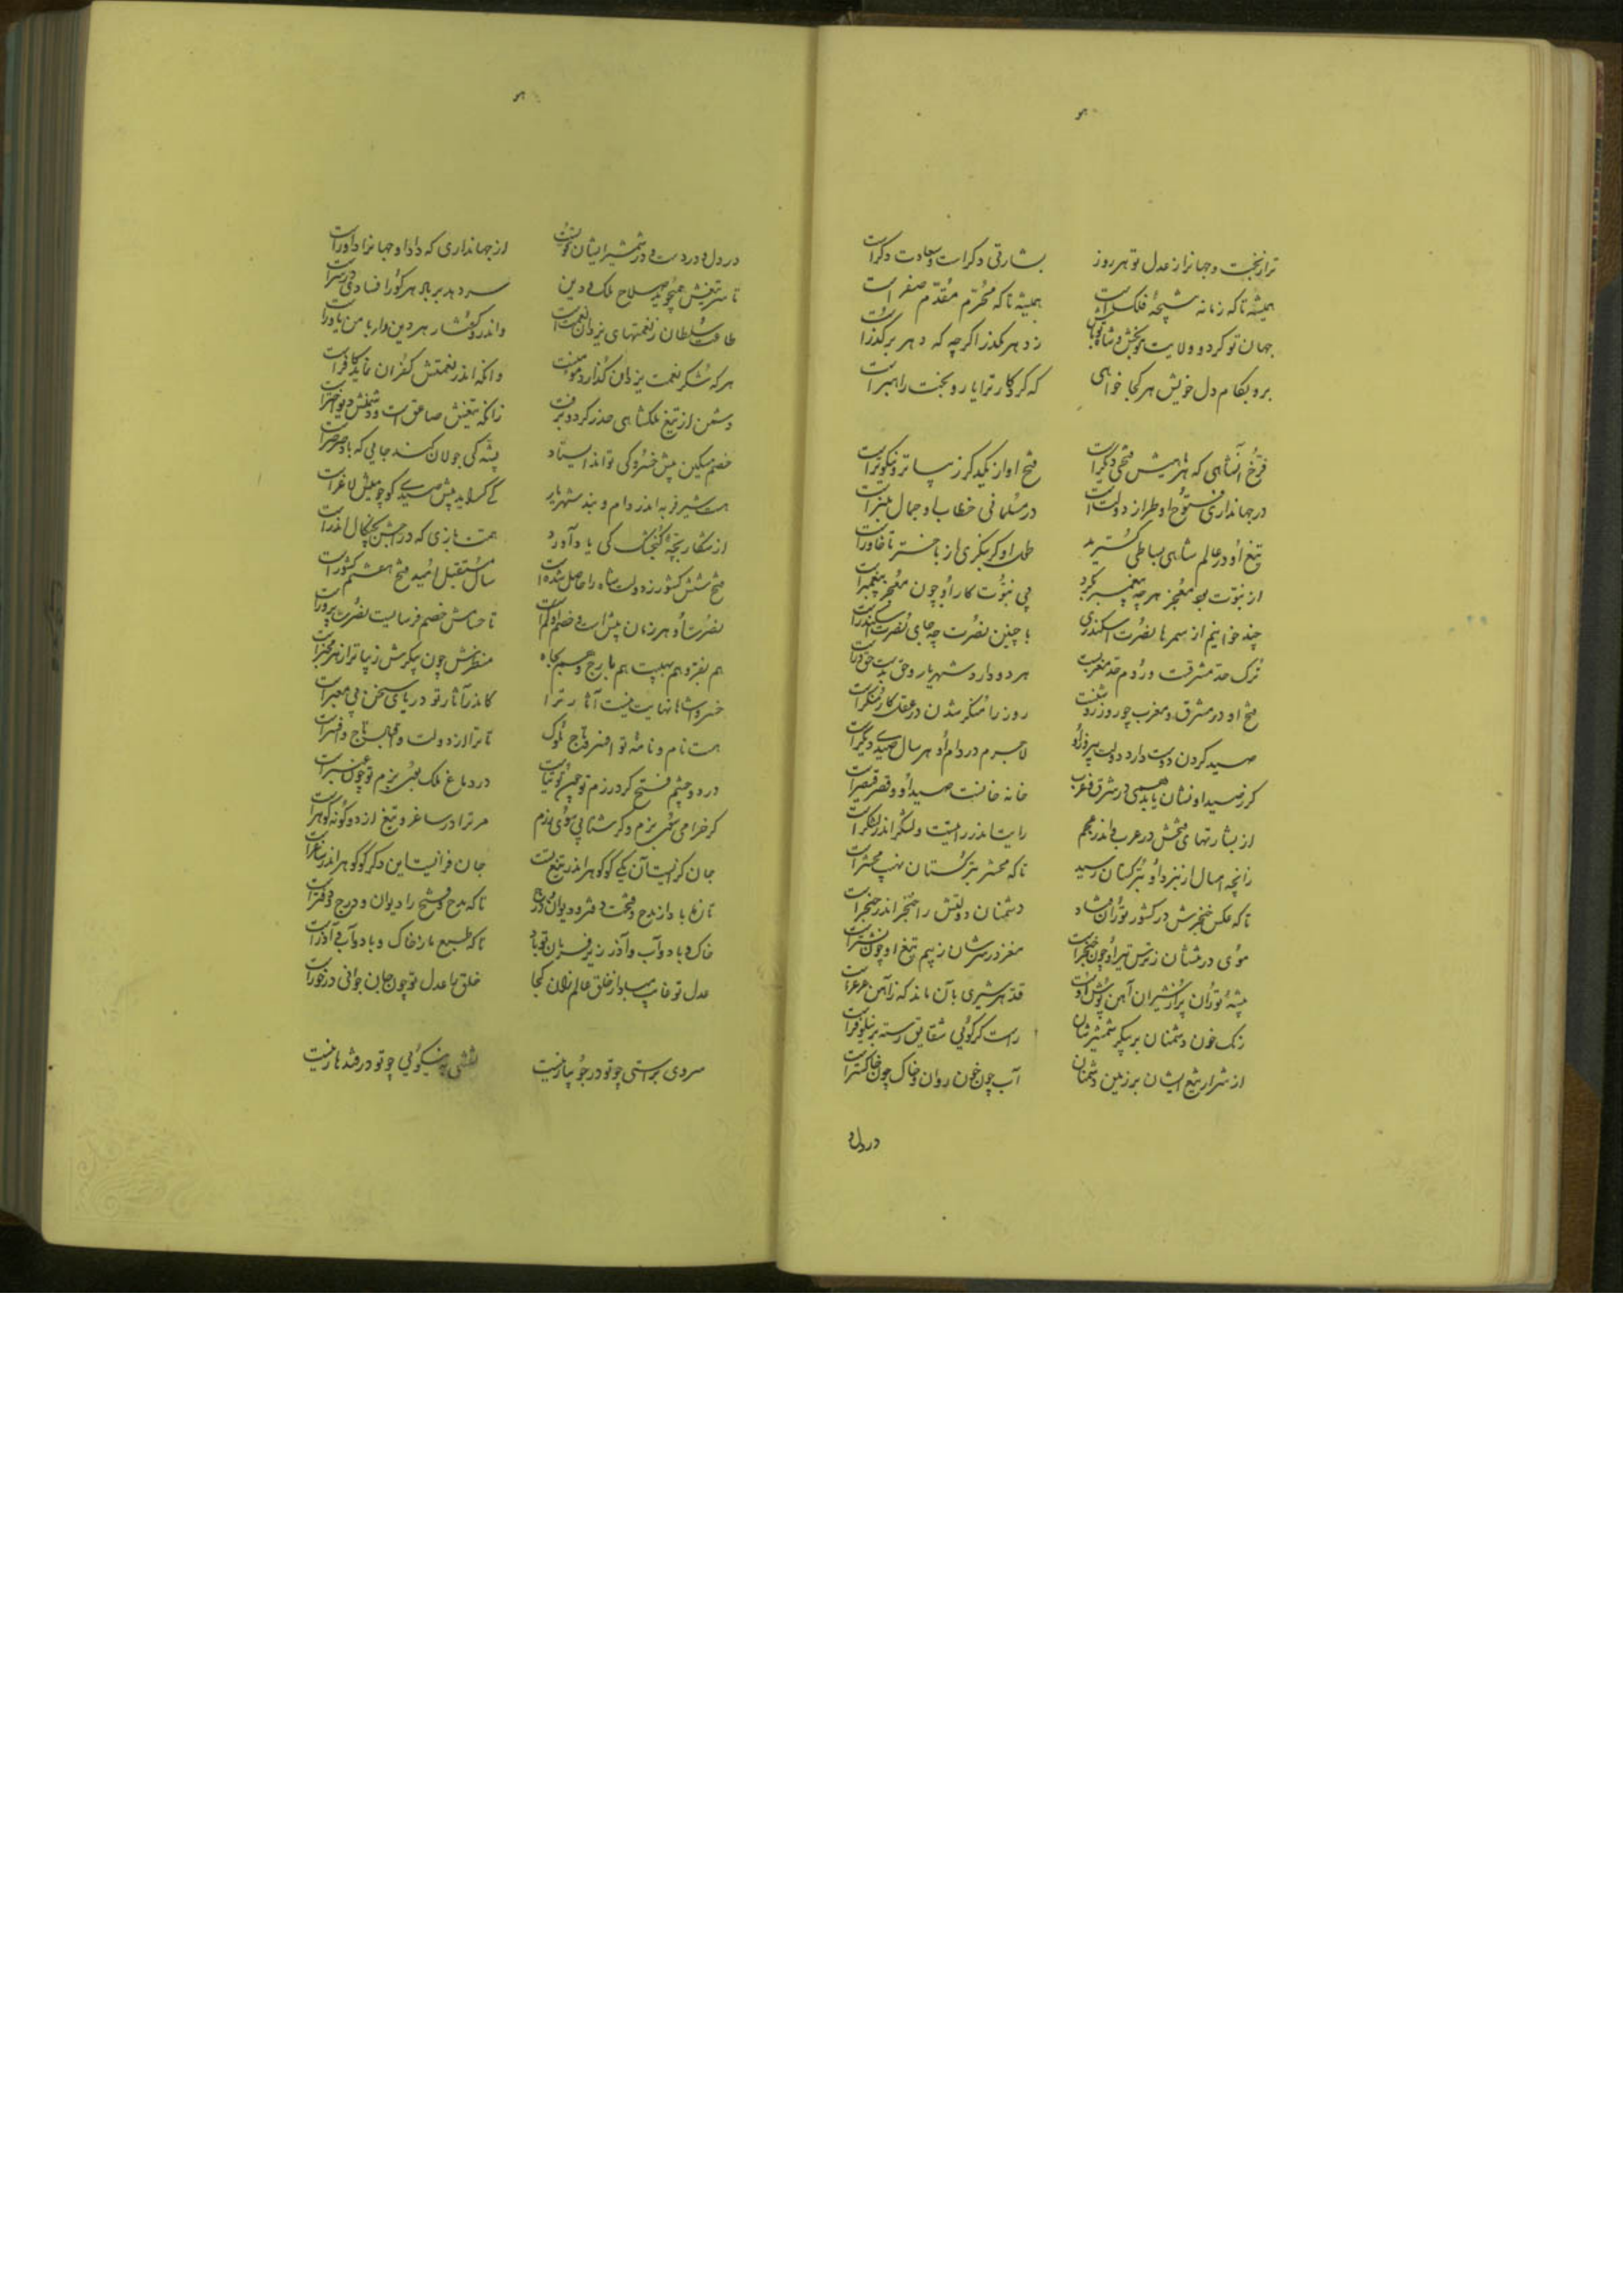 ترا ز بخت و جهانرا ز عدل تو هر روز بشارتی دگر است و سعادت دگر است
همیشه تا که زمانه نتیجهٔ فلک است همیشه تا که محرم مقدم صفر است
جهان تو گرد و ولایت تو بخش و شاد تو باش ز دهر مگذر اگر چه که دهر برگذر است
برو بکام دل خویش هر کجا خواهی که کردگار ترا یار و بخت راهبر است
فرخ آنشاهی که هر ماهیش فتحی دیگر است فتح او از یکدگر زیباتر و نیکوتر است
در جهانداری فتوح او طراز دولت است در مسلمانی خطاب او جمال منبر است
تیغ او در عالم شاهی بساطی گسترید ملک او گر بنگری از باختر تا خاور است
از نبوت بود معجز هر چه پیغمبر بکرد بی نبوت کار او چون معجز پیغمبر است
چند خوانیم از سمرها نصرت اسکندری با چنین نصرت چه جای نصرت اسکندر است
ترک حد مشرقست و روم حد مغربست هر دو دارد شهریار و حق بدست حق‌ور است
فتح او در مشرق و مغرب چو روز روشنست روز را منکر شدن در عقل کار منکر است
صید کردن دوست دارد دولت پیروز او لاجرم در دام او هر سال صیدی دیگر است
گر ز صید او نشان یابد همی در شرق و غرب خانه خانست صید او و قصر قیصر است
از بشارتهای فتحش در عرب و اندر عجم رایت اندر رایتست و لشگر اندر لشگر است
زانچه امسال از نبرد او بترکستان رسید تا که محشر بترکستان نهیب محشر است
تا که عکس خنجرش در کشور توران فتاد دشمنان دولتش را خنجر اندر حنجر است
موی در تنشان ز ترس تیر او چون خنجر است مغز در سرشان ز بیم تیغ او چون نشتر است
بیشهٔ توران پر از شیران آهن پوش اوست قد هر شیری بآن ماند که ز آهن عرعر است
رنگ خون دشمنان بر پیکر شمشیرشان راست گر گویی شقایق رسته بر نیلوفر است
از شرار تیغ ایشان بر زمین دشمنان آب چون خون روان و خاک چون خاکستر است
در دل و
در دل و در دست و در شمشیر ایشان قوتست از جهانداری که دادار جهانرا داور است
تا سر تیغش همی‌جوید صلاح ملک و دین سر دهد بر باد هر کو را فسادی در سر است
طاعت سلطان ز نعمتهای یزدان نعمت است و اندر و گفتار هر دین‌دار با من یاور است
هر که شکر نعمت یزدان گذارد مؤمنست وانکه اندر نعمتش کفران نماید کافر است
دشمن از تیغ ملکشاهی حذر کرد و برفت زانکه تیغش صاعق است و دشمنش دیو اختر است
خصم مسکین پیش خسرو کی تواند ایستاد پشه کی جولان کند جایی که باد صرصر است
هست شیر فربه اندر دام و بند شهریار کی گراید پیش صیدی کو چو میش لاغر است
از شکار بچهٔ گنجشگ کی یاد آورد همت بازی که در جستن بچنگال اندر است
فتح شش کشور ز دولت شاه را حاصل شده است سال مستقبل امید فتح هفتم کشور است
نصرت او هر زمان بیش است و خصم او کم است تا حسامش خصم فرسایست نصرت پرور است
هم بفر و هم بهیبت هم بارج و هم بجاه منظرش چون پیکرش زیباتر از هر مخبر است
خسروا شاها نهایت نیست آثار ترا کاندر آثار تو دریای سخن بی معبر است
هست نام و نامهٔ تو افسر و تاج ملوک تا ترا از دولت و اقبال تاج و افسر است
در دو چشم فتح گرد رزم تو چون توتیاست در دماغ ملک بوی بزم تو چون عنبر است
گر خرامی سوی بزم و گر شتابی سوی رزم مر ترا در ساغر و تیغ از دو گونه گوهر است
جان گزایست آن یکی کو گوهر اندر تیغ تست جان فزایست این دگر کو گوهر اندر ساغر است
تازه باد از مدح و فتحت دفتر و دیوان و درج تا که مدح و فتح را دیوان و درج و دفتر است
خاک و باد و آب و آذر زیر فرمان تو باد تا که طبع ما ز خاک و باد و آب و آذر است
عدل تو غایب مباد از خلق عالم زان کجا خلق با عدل تو چون جان جوانی درخور است
سروی براستی چو تو در جویبار نیست نقشی بنیکویی چو تو در قندهار نیست